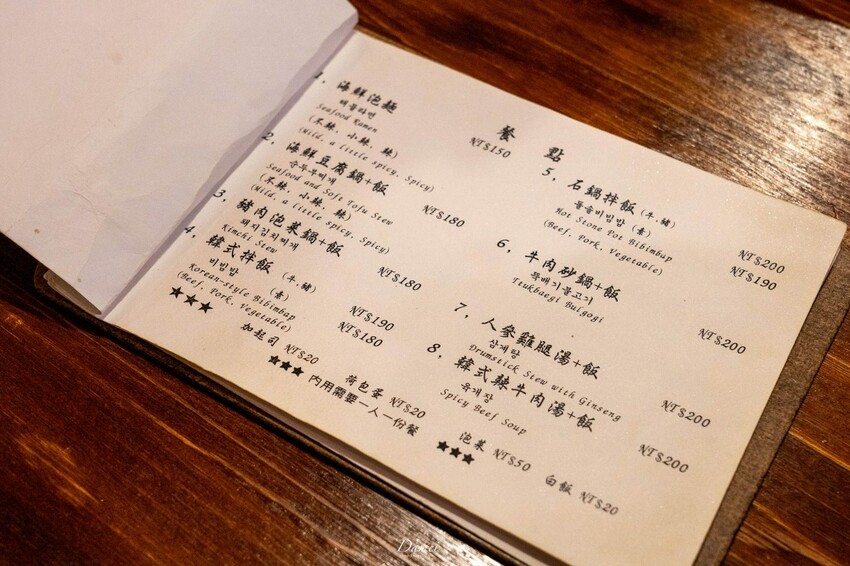 餐 點
1. 海鮮泡麵
해물라면
Seafood Ramen
(不辣, 小辣, 辣) NT$150
(Mild, a little spicy, Spicy)
2. 海鮮豆腐鍋+飯
순두부찌개
Seafood and Soft Tofu Stew
(不辣, 小辣, 辣) NT$180
(Mild, a little spicy, Spicy)
3. 豬肉泡菜鍋+飯
돼지김치찌개
Kimchi Stew NT$180
4. 韓式拌飯 (牛,豬) NT$190
비빔밥 (素) NT$180
Korean-style Bibimbap
(Beef, Pork, Vegetable)
5. 石鍋拌飯 (牛,豬) NT$200
돌솥비빔밥 (素) NT$190
Hot Stone Pot Bibimbap
(Beef, Pork, Vegetable)
6. 牛肉砂鍋+飯
뚝배기불고기 NT$200
Ttukbaegi Bulgogi
7. 人參雞腿湯+飯
삼계탕 NT$200
Drumstick Stew with Ginseng
8. 韓式辣牛肉湯+飯
육개장 NT$200
Spicy Beef Soup
★★★ 加起司 NT$20 荷包蛋 NT$20 泡菜 NT$50 白飯 NT$20
★★★ 內用需要一人一份餐 ★★★